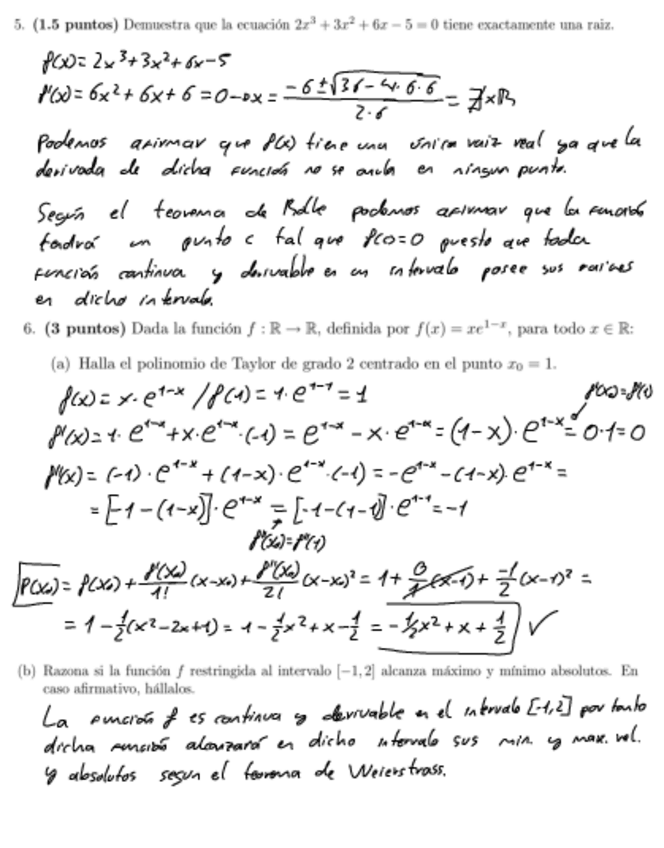 5. (1.5 puntos) Demuestra que la ecuación 2x³ + 3x² + 6x − 5 = 0 tiene exactamente una raiz.
f(x) = 2x³+3x²+6x−5
f'(x) = 6x²+6x+6 = 0 → x = (−6 ± √(36 − 4·6·6)) / (2·6) = ∄ x ℝ
Podemos afirmar que f(x) tiene una única raiz real ya que la
derivada de dicha función no se anula en ningun punto.
Según el teorema de Rolle podemos afirmar que la función
tendrá un punto c tal que f(c)=0 puesto que toda
función continua y derivable en un intervalo posee sus raices
en dicho intervalo.
6. (3 puntos) Dada la función f : ℝ → ℝ, definida por f(x) = xe¹⁻ˣ, para todo x ∈ ℝ:
(a) Halla el polinomio de Taylor de grado 2 centrado en el punto x₀ = 1.
f(x) = x·e¹⁻ˣ / f(1) = 1·e¹⁻¹ = 1
f'(x₀)=f'(1)
f'(x) = 1·e¹⁻ˣ + x·e¹⁻ˣ·(−1) = e¹⁻ˣ − x·e¹⁻ˣ = (1−x)·e¹⁻ˣ = 0·1 = 0
f''(x) = (−1)·e¹⁻ˣ + (1−x)·e¹⁻ˣ·(−1) = −e¹⁻ˣ − (1−x)·e¹⁻ˣ =
= [−1−(1−x)]·e¹⁻ˣ = [−1−(1−1)]·e¹⁻¹ = −1
f''(x₀)=f''(1)
P(x₀) = f(x₀) + f'(x₀)/1! (x−x₀) + f''(x₀)/2! (x−x₀)² = 1 + 0/1 (x−1) + −1/2 (x−1)² =
= 1 − 1/2(x²−2x+1) = 1 − 1/2x² + x − 1/2 = −1/2x² + x + 1/2 ✓
(b) Razona si la función f restringida al intervalo [−1, 2] alcanza máximo y mínimo absolutos. En
caso afirmativo, hállalos.
La función f es continua y derivable en el intervalo [-1,2] por tanto
dicha función alcanzará en dicho intervalo sus min. y max. rel.
y absolutos segun el teorema de Weierstrass.